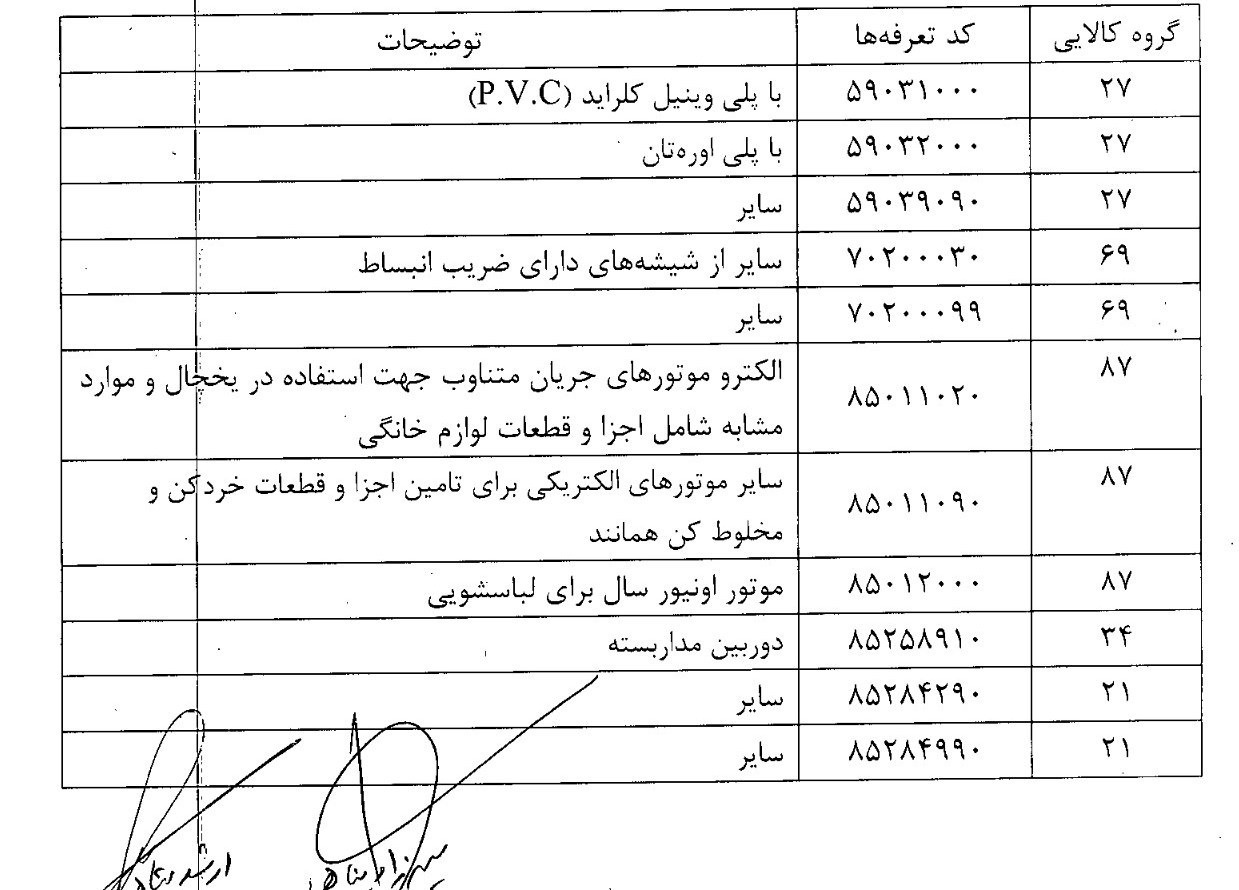 گروه کالایی کد تعرفه‌ها توضیحات
۲۷ ۵۹۰۳۱۰۰۰ با پلی وینیل کلراید (P.V.C)
۲۷ ۵۹۰۳۲۰۰۰ با پلی اوره‌تان
۲۷ ۵۹۰۳۹۰۹۰ سایر
۶۹ ۷۰۲۰۰۰۳۰ سایر از شیشه‌های دارای ضریب انبساط
۶۹ ۷۰۲۰۰۰۹۹ سایر
۸۷ ۸۵۰۱۱۰۲۰ الکترو موتورهای جریان متناوب جهت استفاده در یخچال و موارد
مشابه شامل اجزا و قطعات لوازم خانگی
۸۷ ۸۵۰۱۱۰۹۰ سایر موتورهای الکتریکی برای تامین اجزا و قطعات خردکن و
مخلوط کن همانند
۸۷ ۸۵۰۱۲۰۰۰ موتور اونیور سال برای لباسشویی
۳۴ ۸۵۲۵۸۹۱۰ دوربین مداربسته
۲۱ ۸۵۲۸۴۲۹۰ سایر
۲۱ ۸۵۲۸۴۹۹۰ سایر